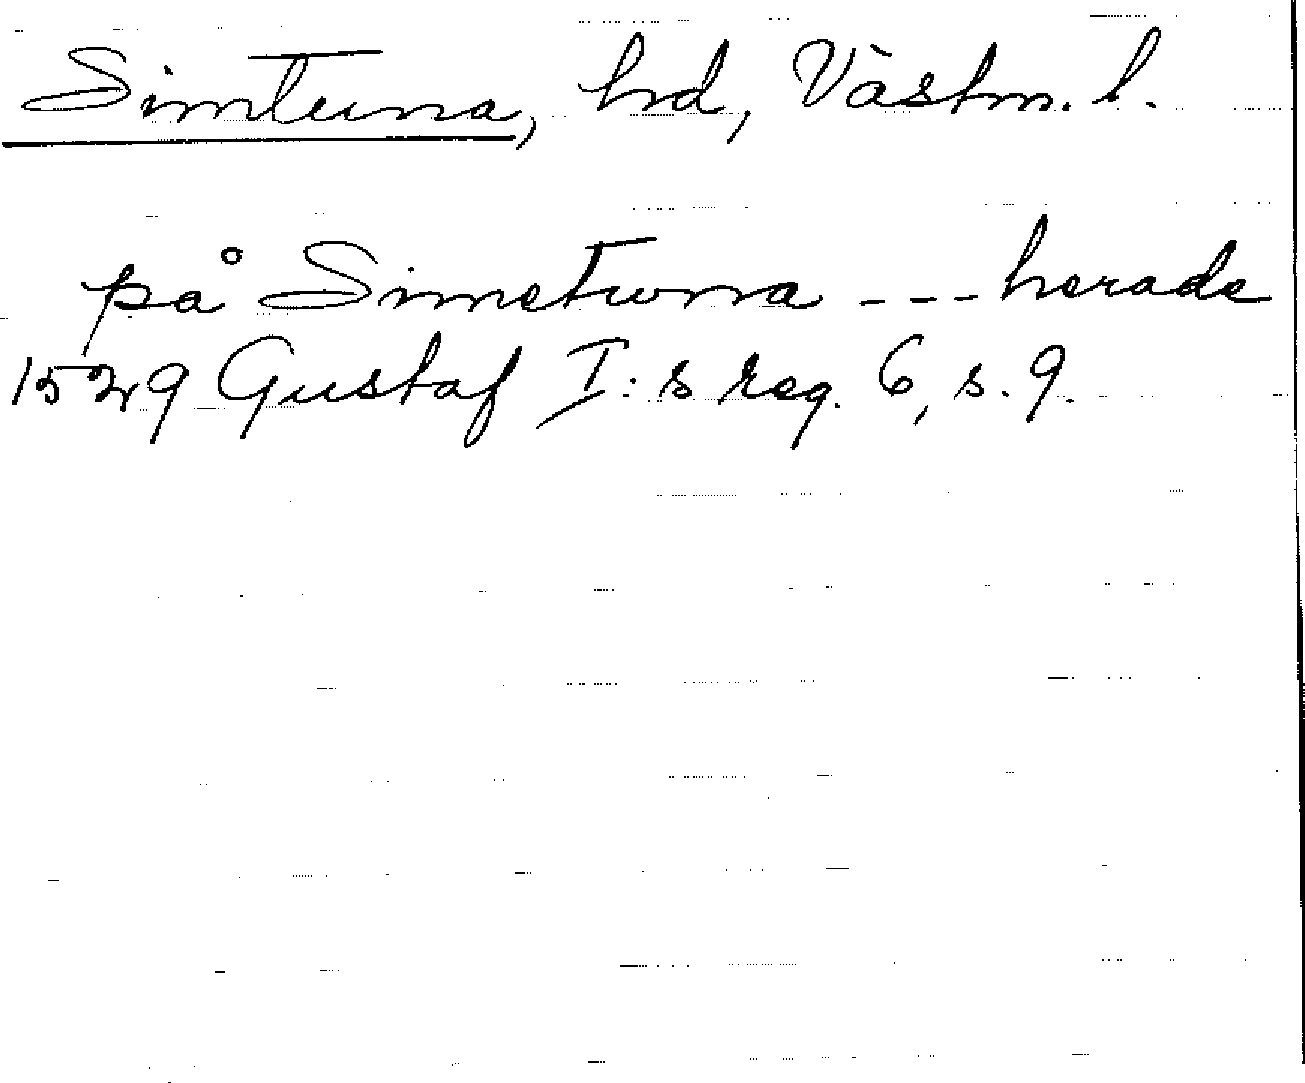 Simtuna, hd, Västm. l.
på Simetuna --- herade
1529 Gustaf I:s reg. 6, s. 9.